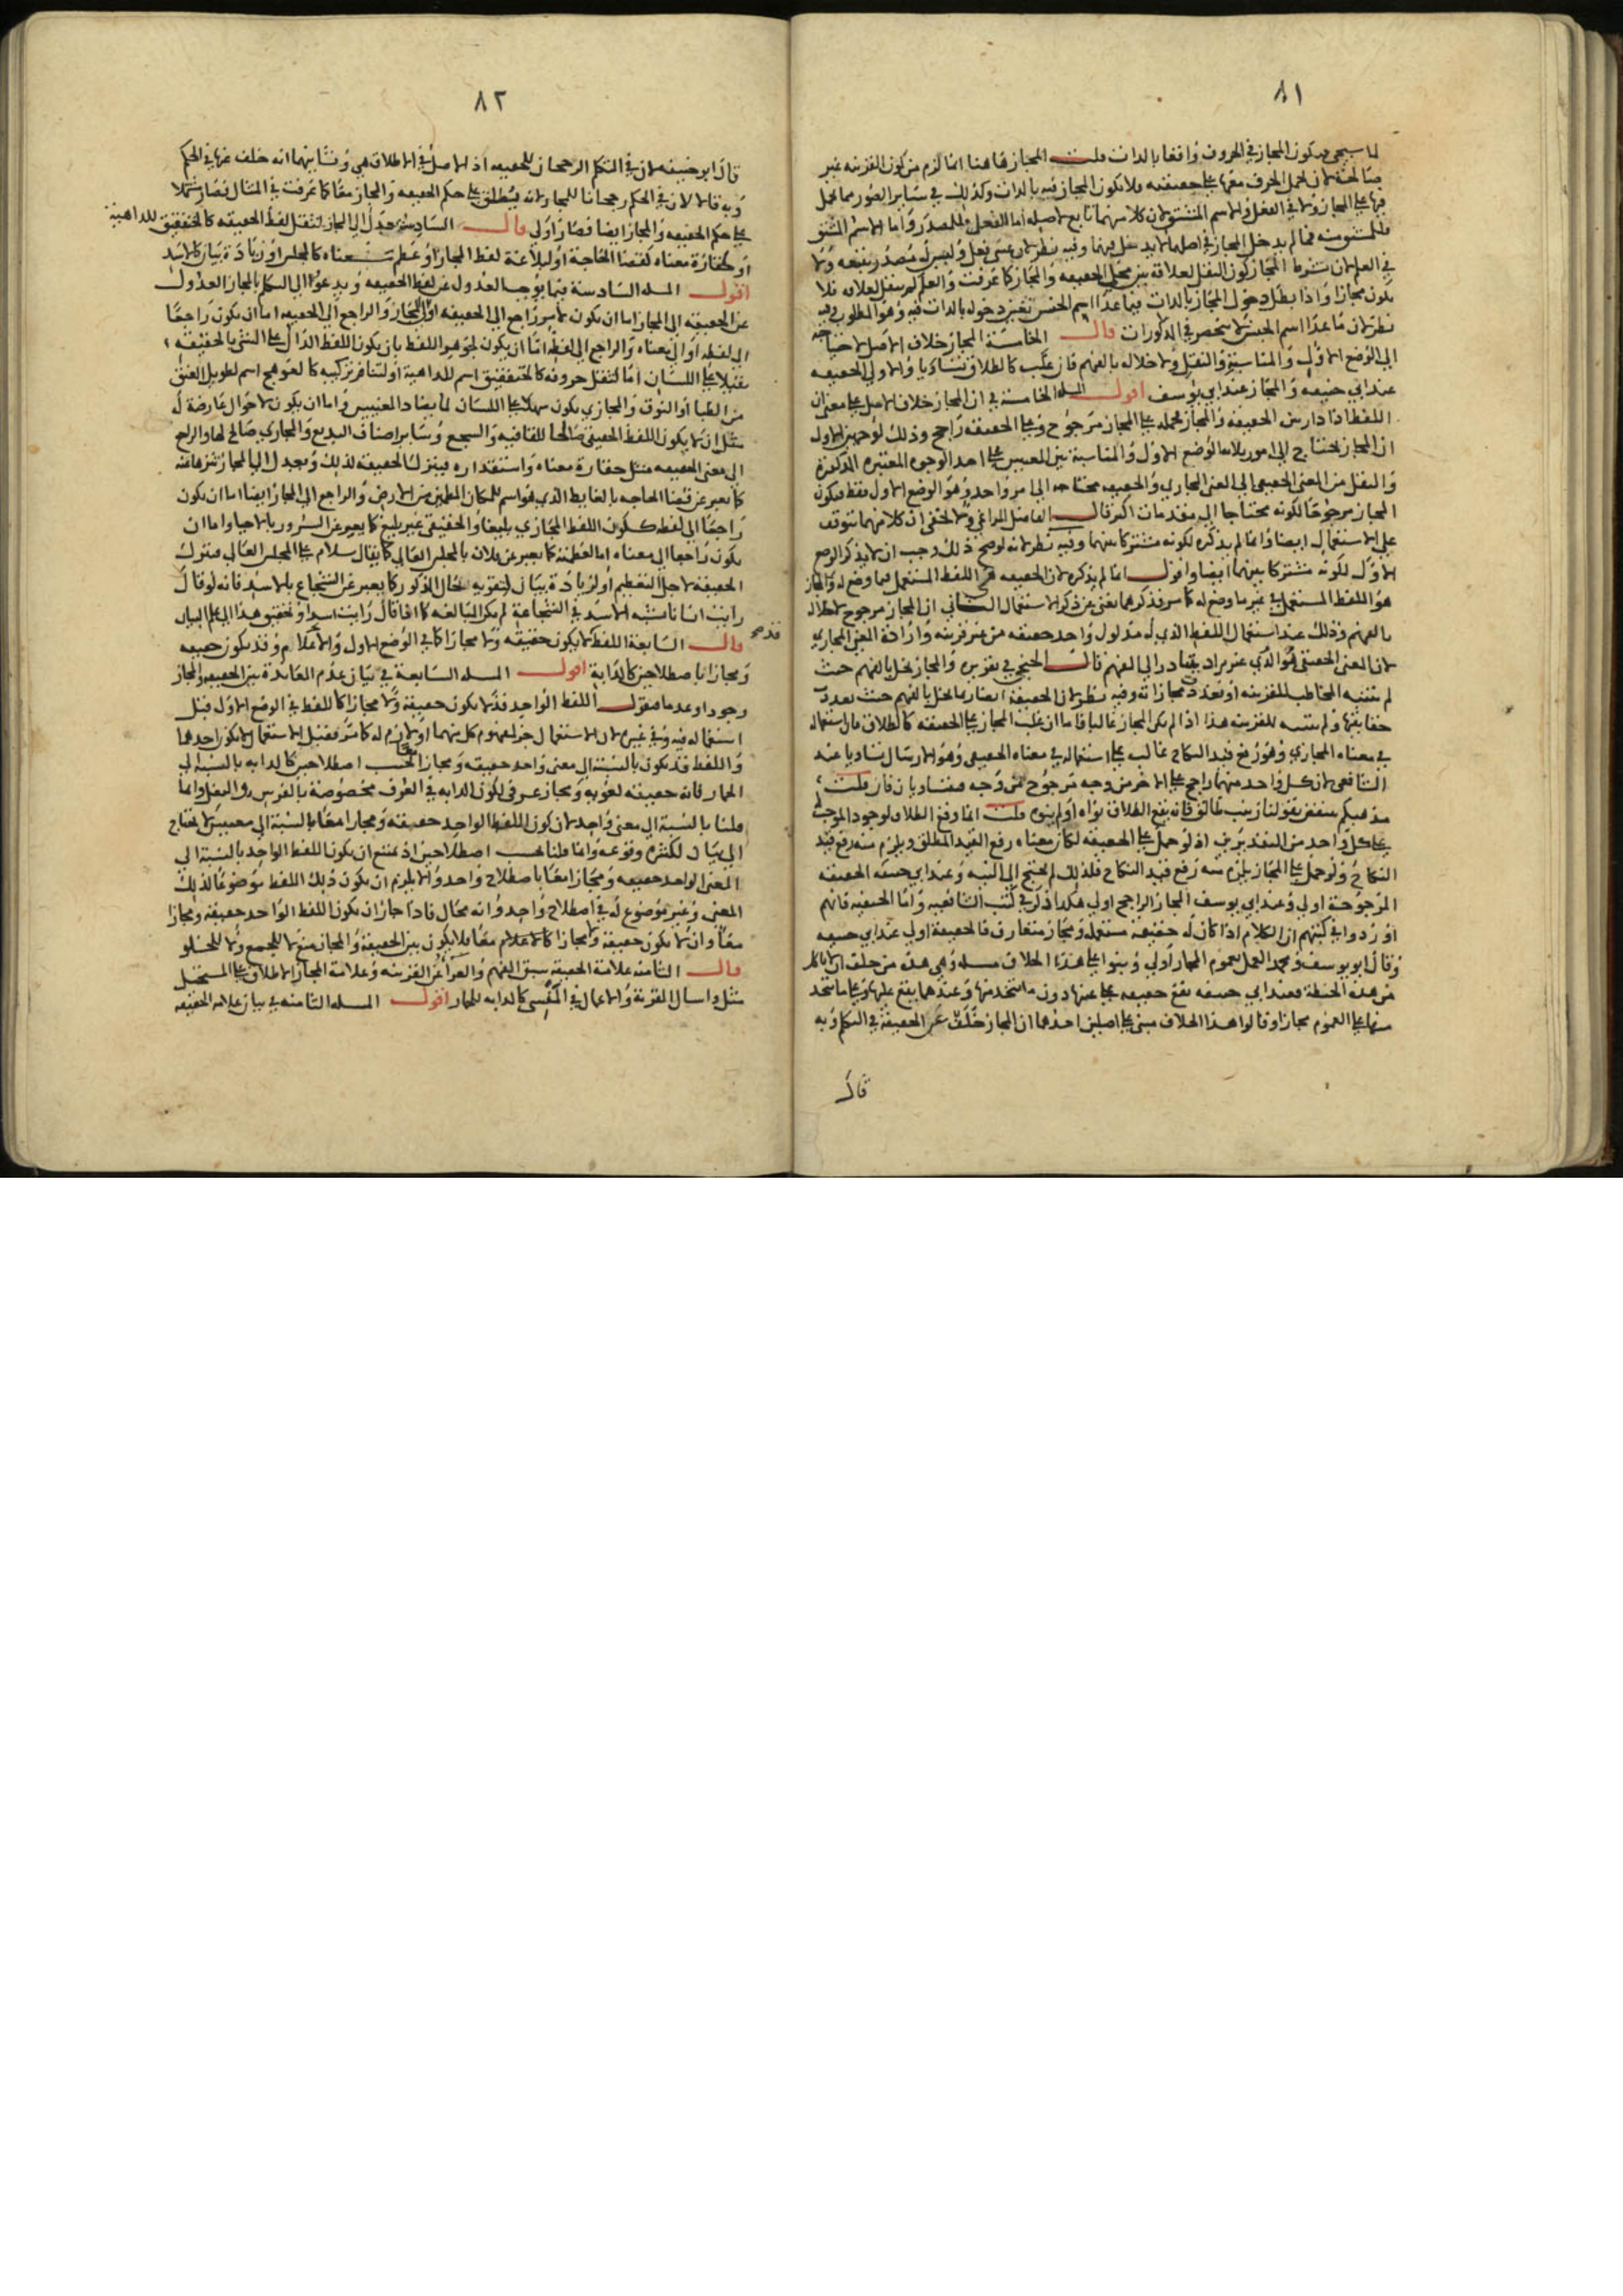 ٨١
لما سيجي فيكون المجاز في الحروف واقعا بالذات قلت المجاز هاهنا انما لزم من كون القرينة غير
صالحة لان تحمل الحرف معها على حقيقته فلا يكون المجاز فيه بالذات وكذلك في سائر الصور مما يحمل
فيها على المجاز ولا في الفعل والاسم المشتق لان كلا منهما تابع لاصله اما الفعل فللمصدر واما الاسم المشتق
فللمشتق منه فما لم يدخل المجاز في اصلهما لا يدخل فيهما وفيه نظر لان عسى فعل وليس له مصدر يتبعه ولا
في العلم لان شرط المجاز كون النقل لعلاقة بين محل الحقيقة والمجاز كما عرفت والعلم لم ينقل لعلاقة فلا
يكون مجازا واذا بطل دخول المجاز بالذات فيما عدا اسم الجنس تعين دخوله بالذات فيه وهو المطلوب وفيه
نظر لان ما عدا اسم الجنس لا ينحصر في المذكورات قال الخامسة المجاز خلاف الاصل لاحتياجه
الى الوضع الاول والمناسبة والنقل ولاخلاله بالفهم فان غلب كالطلاق تساويا والاولى الحقيقة
عند ابي حنيفة والمجاز عند ابي يوسف اقول المسئلة الخامسة في ان المجاز خلاف الاصل على معنى ان
اللفظ اذا دار بين الحقيقة والمجاز فحمله على المجاز مرجوح وعلى الحقيقة راجح وذلك لوجهين الاول
ان المجاز يحتاج الى امور ثلاثة الوضع الاول والمناسبة بين المعنيين على احد الوجوه المعتبرة المذكورة
والنقل من المعنى الحقيقي الى المعنى المجازي والحقيقة محتاجة الى امر واحد وهو الوضع الاول فقط فيكون
المجاز مرجوحا لكونه محتاجا الى مقدمات اكثر قال الفاضل المراغي ولا يخفى ان كلا منهما يتوقف
على الاستعمال ايضا وانما لم يذكره لكونه مشتركا بينهما وفيه نظر لانه لو صح ذلك وجب ان لا يذكر الوضع
الاول لكونه مشتركا بينهما ايضا واقول انما لم يذكره لان الحقيقة هي اللفظ المستعمل فيما وضع له والمجاز
هو اللفظ المستعمل في غير ما وضع له كما مر فذكرهما يغني عن ذكر الاستعمال الثاني ان المجاز مرجوح لاخلاله
بالفهم وذلك عند استعمال اللفظ الذي له مدلول واحد حقيقة من غير قرينة وارادة المعنى المجازي
لان المعنى الحقيقي هو الذي غير مراد يتبادر الى الفهم قال الخنجي في تقريره والمجاز يخل بالفهم حيث
لم يتنبه المخاطب للقرينة او تعدد مجازاته وفيه نظر لان الحقيقة ايضا ربما تخل بالفهم حيث تعددت
حقايقها ولم يتنبه للقرينة هذا اذا لم يكن المجاز غالبا فاما ان غلب المجاز على الحقيقة كالطلاق فان استعماله
في معناه المجازي وهو رفع قيد النكاح غالب على استعماله في معناه الحقيقي وهو الارسال تساويا عند
الشافعي لان كل واحد منهما راجح على الاخر من وجه مرجوح من وجه فتساويان فان قلت
مذهبكم ينتقض بقولنا زينب طالق فانه يقع الطلاق نواه او لم ينوه قلت انما وقع الطلاق لوجود الموجب له
على كل واحد من التقديرين اذ لو حمل على الحقيقة لكان معناه رفع القيد المطلق ويلزم منه رفع قيد
النكاح ولو حمل على المجاز يلزم منه رفع قيد النكاح فلذلك لم يحتج الى النية وعند ابي حنيفة الحقيقة
المرجوحة اولى وعند ابي يوسف المجاز الراجح اولى هكذا ذكر في كتب الشافعية واما الحنفية فانهم
اوردوا في كتبهم ان الكلام اذا كان له حقيقة مستعملة ومجاز متعارف فالحقيقة اولى عند ابي حنيفة
وقال ابو يوسف ومحمد العمل بعموم المجاز اولى وبنوا على هذا الخلاف مسئلة وهي هذه من حلف ان لا ياكل
من هذه الحنطة فعند ابي حنيفة يقع حقيقة على عينها دون ما يتخذ منها وعندهما يقع عليها وعلى ما يتخذ
منها على العموم مجازا وقالوا هذا الخلاف مبني على اصلين احدهما ان المجاز خلف عن الحقيقة في التكلم وبه
قال
٨٢
قال ابو حنيفة لان في التكلم الرجحان للحقيقة اذ الاصل في الاطلاق هي وثانيهما انه خلف عنها في الحكم
وبه قالا لان في الحكم رجحانا للمجاز لانه ينطلق على حكم الحقيقة والمجاز معا كما عرفت في المثال فصار مشتملا
على حكم الحقيقة والمجاز ايضا فصار اولى قال السادسة يعدل الى المجاز لثقل لفظ الحقيقة كالخنفقيق للداهية
او لحقارة معناه كقضاء الحاجة او لبلاغة لفظ المجاز او عظم معناه كالمجلس او زيادة بيان كالاسد
اقول المسئلة السادسة فيما يوجب العدول عن لفظ الحقيقة ويدعو الى التكلم بالمجاز العدول
عن الحقيقة الى المجاز اما ان يكون لامر راجع الى الحقيقة او الى المجاز والراجع الى الحقيقة اما ان يكون راجعا
الى لفظه او الى معناه والراجع الى لفظه اما ان يكون لجوهر اللفظ بان يكون اللفظ الدال على الشيء بالحقيقة
ثقيلا على اللسان اما لثقل حروفه كالخنفقيق اسم للداهية او لتنافر تركيبه كالعوهج اسم لطويل العنق
من الظبا او النوق والمجازي يكون سهلا على اللسان لما يضاد المعنيين واما ان يكون لاحوال عارضة له
مثل ان لا يكون اللفظ الحقيقي صالحا للقافية والسجع وسائر اصناف البديع والمجازي صالح لها والراجع
الى معنى الحقيقة مثل حقارة معناه واستقذاره فيترك الحقيقة لذلك ويعدل الى المجاز تنزها عنه
كما يعبر عن قضا الحاجة بالغايط الذي هو اسم للمكان المطمئن من الارض والراجع الى المجاز ايضا اما ان يكون
راجعا الى لفظه ككون اللفظ المجازي بليغا والحقيقي غير بليغ كما يعبر عن السرور بالاحيا واما ان
يكون راجعا الى معناه اما لعظمته كما يعبر عن فلان بالمجلس العالي كما يقال سلام على المجلس العالي فتترك
الحقيقة لاجل التعظيم او لزيادة بيان لتقوية الحال المذكور كما يعبر عن الشجاع بالاسد فانه لو قال
رايت انسانا يشبه الاسد في الشجاعة لم يكن المبالغة كما اذا قال رايت اسدا وتحقيق هذا الى علم البيان
قال السابعة اللفظ لا يكون حقيقة ولا مجازا كما في الوضع الاول والاعلام وقد يكون حقيقة
ومجازا باصطلاحين كالدابة اقول المسئلة السابعة في بيان عدم المعاندة بين الحقيقة والمجاز
وجودا وعدما فنقول اللفظ الواحد قد لا يكون حقيقة ولا مجازا كاللفظ في الوضع الاول قبل
استعماله فيه وفي غيره لان الاستعمال جزء لمفهوم كل منهما او لازم له كما مر فقبل الاستعمال لا يكون احدهما
واللفظ قد يكون بالنسبة الى معنى واحد حقيقة ومجازا بحسب اصطلاحين كالدابة بالنسبة الى
الحمار فانه حقيقة لغوية ومجاز عرفي لكون الدابة في العرف مخصوصة بالفرس والبغل وانما
قلنا بالنسبة الى معنى واحد لان كون اللفظ الواحد حقيقة ومجازا معا بالنسبة الى معنيين لا يحتاج
الى بيان لكثرة وقوعه وانما قلنا بحسب اصطلاحين اذ يمتنع ان يكون اللفظ الواحد بالنسبة الى
المعنى الواحد حقيقة ومجازا معا باصطلاح واحد والا يلزم ان يكون ذلك اللفظ موضوعا لذلك
المعنى وغير موضوع له في اصطلاح واحد وانه محال فاذا جاز ان يكون اللفظ الواحد حقيقة ومجازا
معا وان لا يكون حقيقة ولا مجازا كالاعلام معا فلا يكون بين الحقيقة والمجاز منع لا للجمع ولا للخلو
قال الثامنة علامة الحقيقة سبق الفهم والعراء عن القرينة وعلامة المجاز الاطلاق على المستحيل
مثل واسال القرية والاعمال في المنسي كالدابة للحمار اقول المسئلة الثامنة في بيان علامة الحقيقة